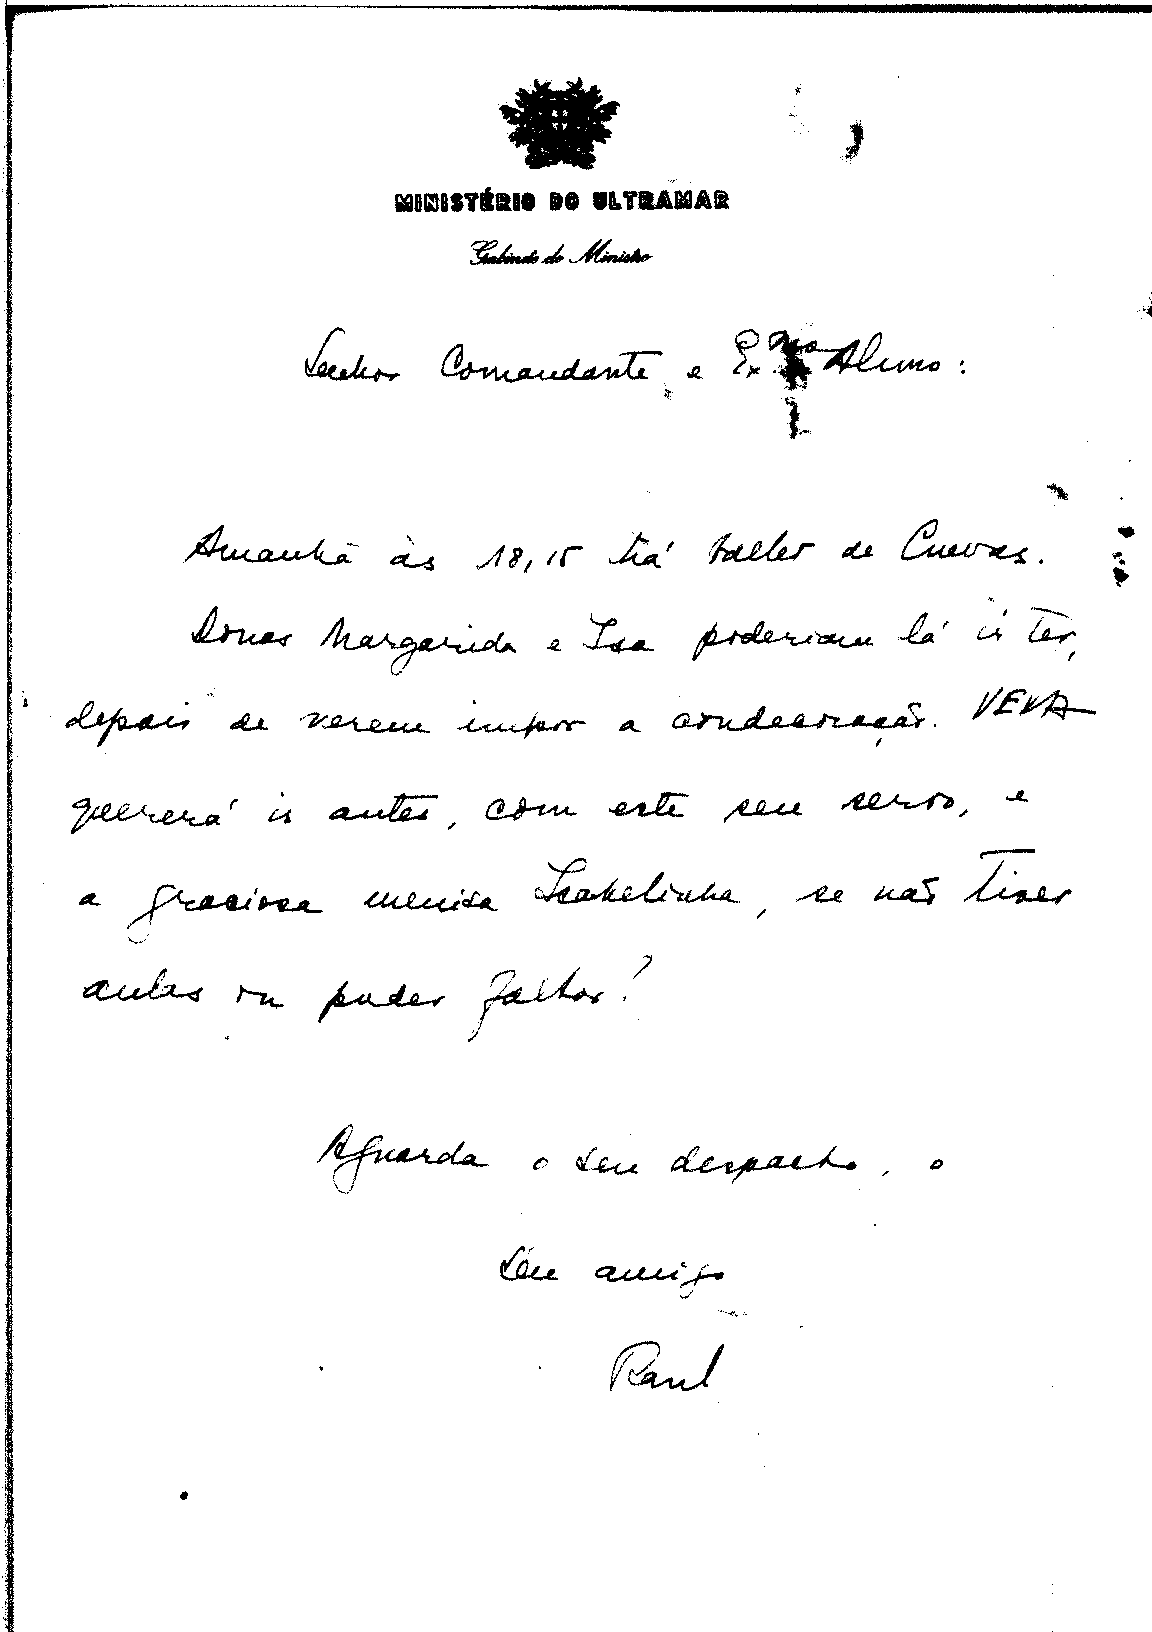 MINISTÉRIO DO ULTRAMAR
Gabinete do Ministro
Senhor Comandante e Exmo Aluno:
Amanhã às 18,15 há ballet de Cuevas.
Donas Margarida e Isa poderiam lá ir ter,
depois de verem impor a condecoração. VEXA
quererá ir antes, com este seu servo, e
a graciosa menina Isabelinha, se não tiver
aulas ou puder faltar?
Aguarda o seu despacho, o
seu amigo
Raul